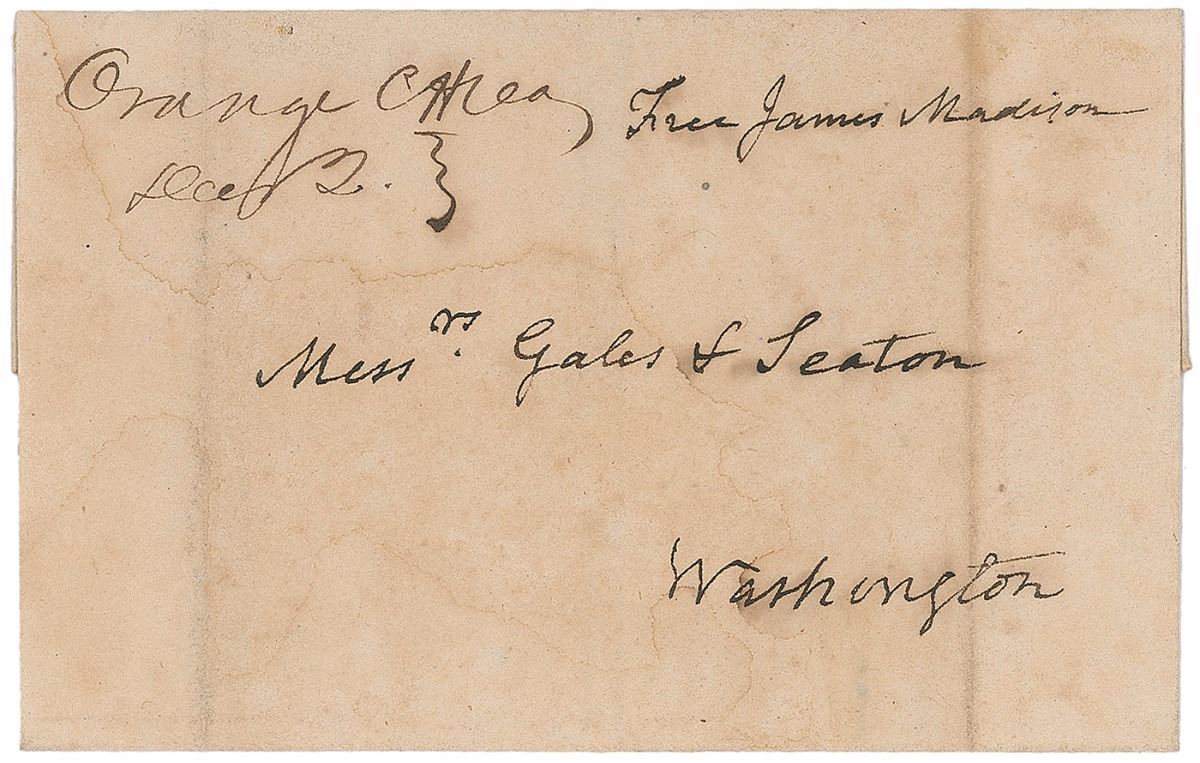 Orange CHea
Dec 2.
Free James Madison
Messrs. Gales & Seaton
Washington